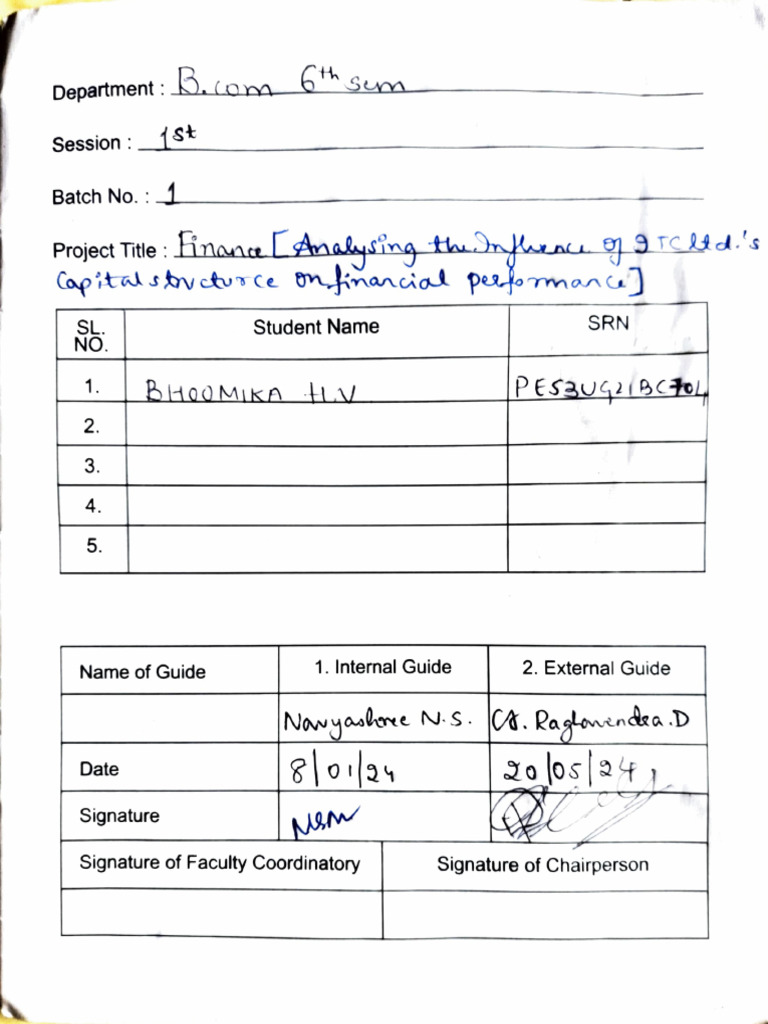 Department : B.com 6th sem
Session : 1st
Batch No. : 1
Project Title : Finance [Analysing the Influence of ITC ltd.'s
Capital structurce on financial performance]
SL. NO. Student Name SRN
1. BHOOMIKA H.V PES3UG21BC704
2.
3.
4.
5.
Name of Guide 1. Internal Guide 2. External Guide
Navyashree N.S. CA. Raghavendra.D
Date 8/01/24 20/05/24
Signature
Signature of Faculty Coordinatory Signature of Chairperson